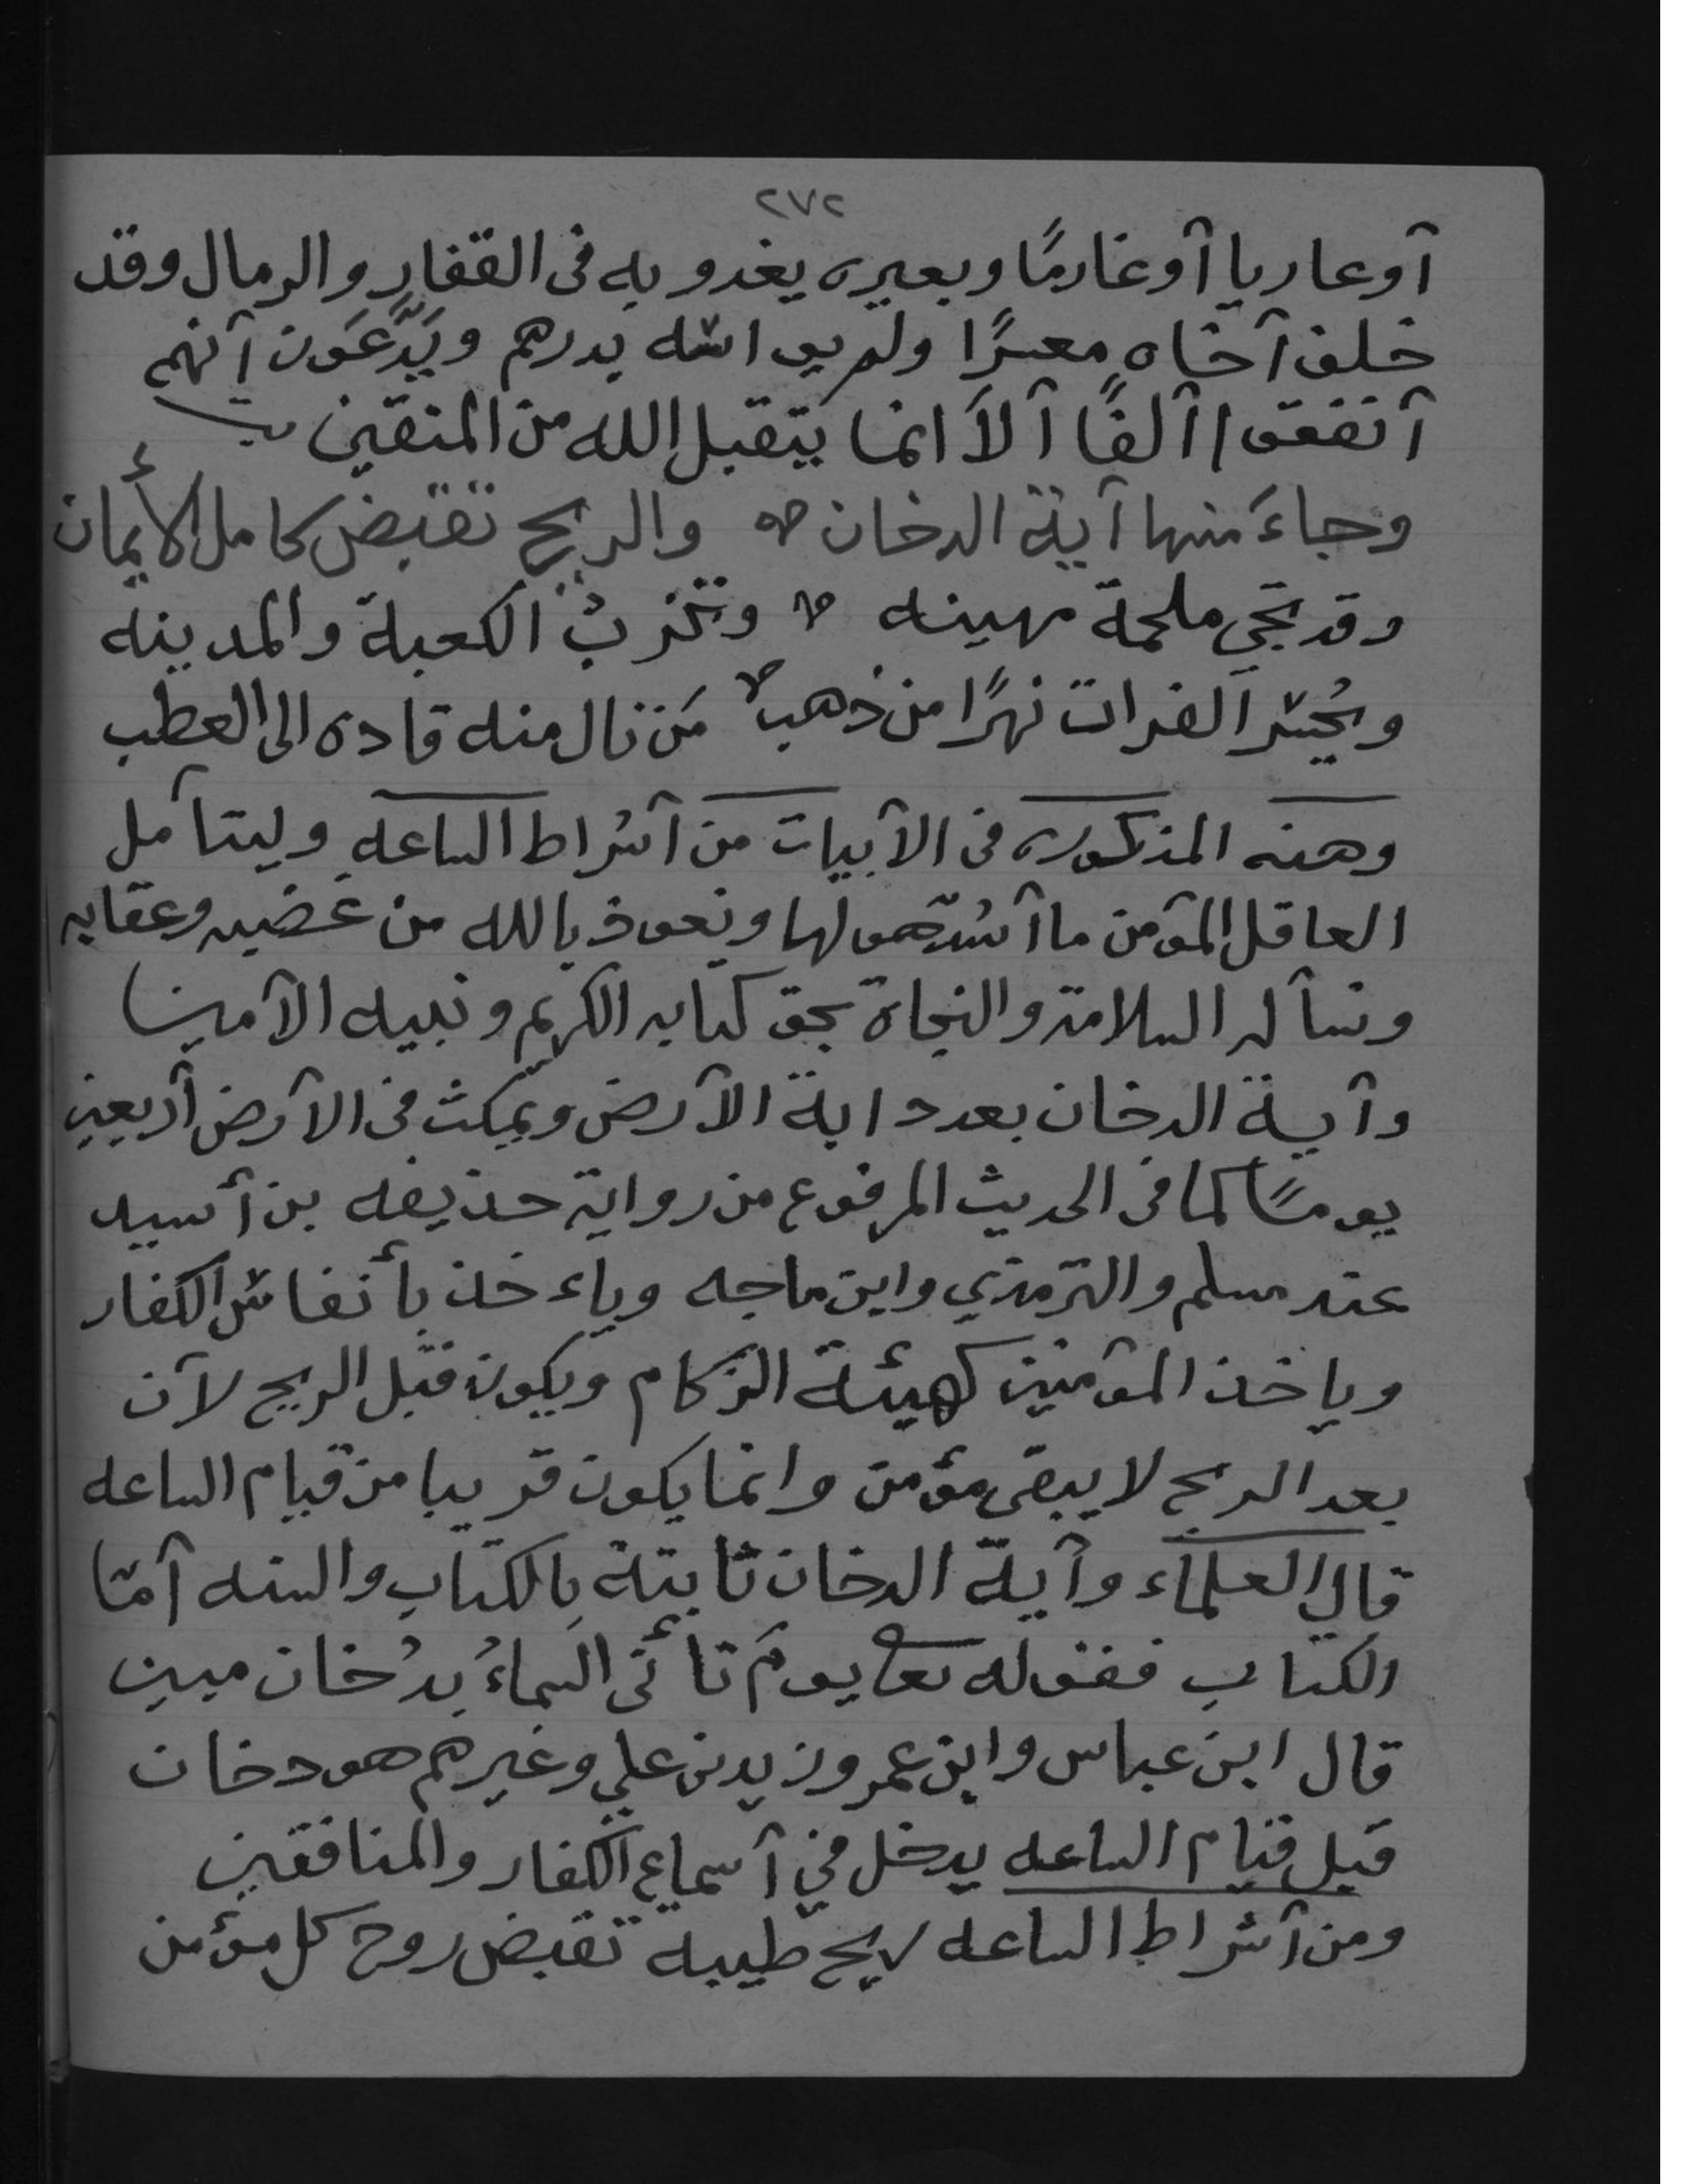 ٢٧٢
أو عاريا أو غارمًا وبعيره يغدو به فى القفار والرمال وقد
خلف أخاه معسرًا ولم يواسه بدرهم ويَدَّعَون أنهم
أنفقوا ألفًا ألاَ انما يتقبل الله من المتقين
وجاءَ منها آية الدخان والريح تقبض كامل الأيمان
وقد تجي ملحمة مهينه وتخربُ الكعبة والمدينه
ويُحسر الفرات نهرًا من ذهب مَن نال منه قاده الى العطب
وهذه المذكوره فى الأبيات من أشراط الساعه وليتأمل
العاقل المؤمن ما أشد هولها ونعوذ بالله من غضبه وعقابه
ونسأله السلامة والنجاة بحق كتابه الكريم ونبيه الأمين
وآية الدخان بعد دابة الأرض ويمكث فى الأرض أربعين
يومًا كما فى الحديث المرفوع من رواية حذيفه بن أسيد
عند مسلم والترمذي وابن ماجه وياءخذ بأنفاس الكفار
وياخذ المؤمنين كهيئة الزكام ويكون قبل الريح لأن
بعد الريح لا يبقى مؤمن وانما يكون قريبا من قيام الساعه
قال العلماء وآية الدخان ثابتة بالكتاب والسنه أمّا
الكتاب فقوله تعا يومَ تأتى السماءُ بدُخان مبين
قال ابن عباس وابن عمر وزيد بن علي وغيرهم هو دخان
قبل قيام الساعه يدخل في أسماع الكفار والمنافقين
ومن أشراط الساعه ريح طيبه تقبض روح كل مؤمن